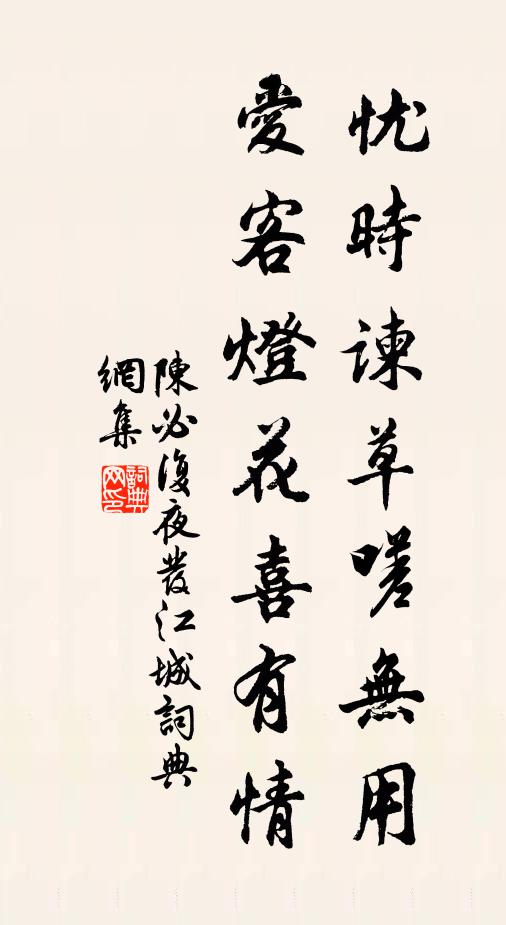 忧時諫草嗟無用
愛客燈花喜有情
陳必復夜發江城詞典
網集
詞典網印